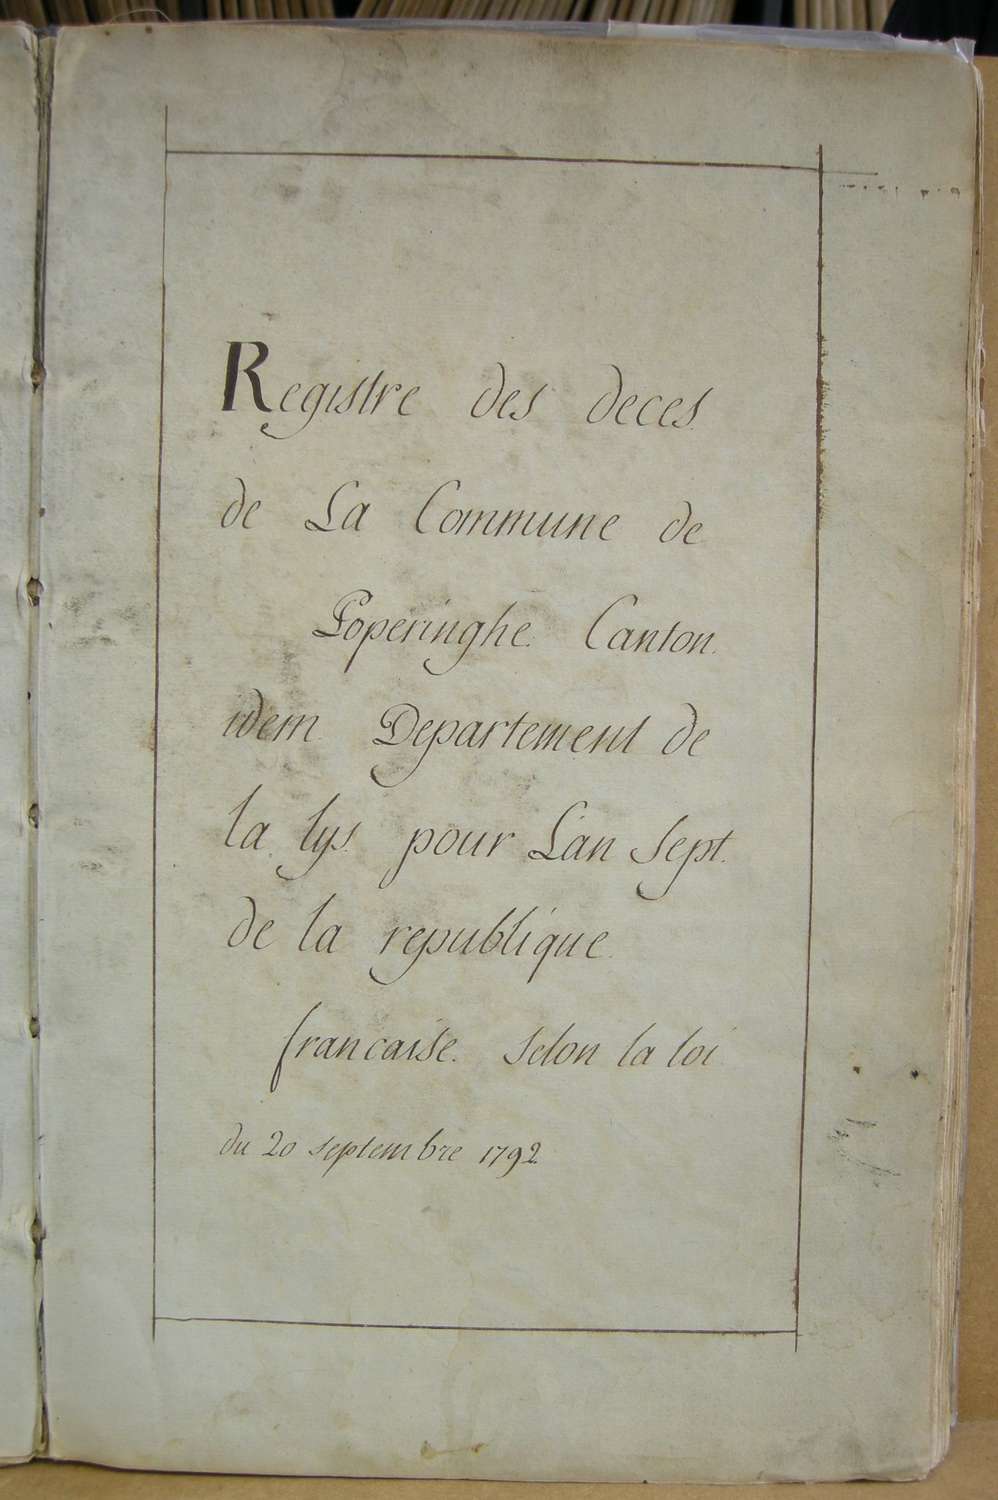 Registre des deces
de La Commune de
Poperinghe. Canton.
idem Departement de
la lys. pour L'an sept.
de la republique.
francaise. selon la loi
du 20 septembre 1792